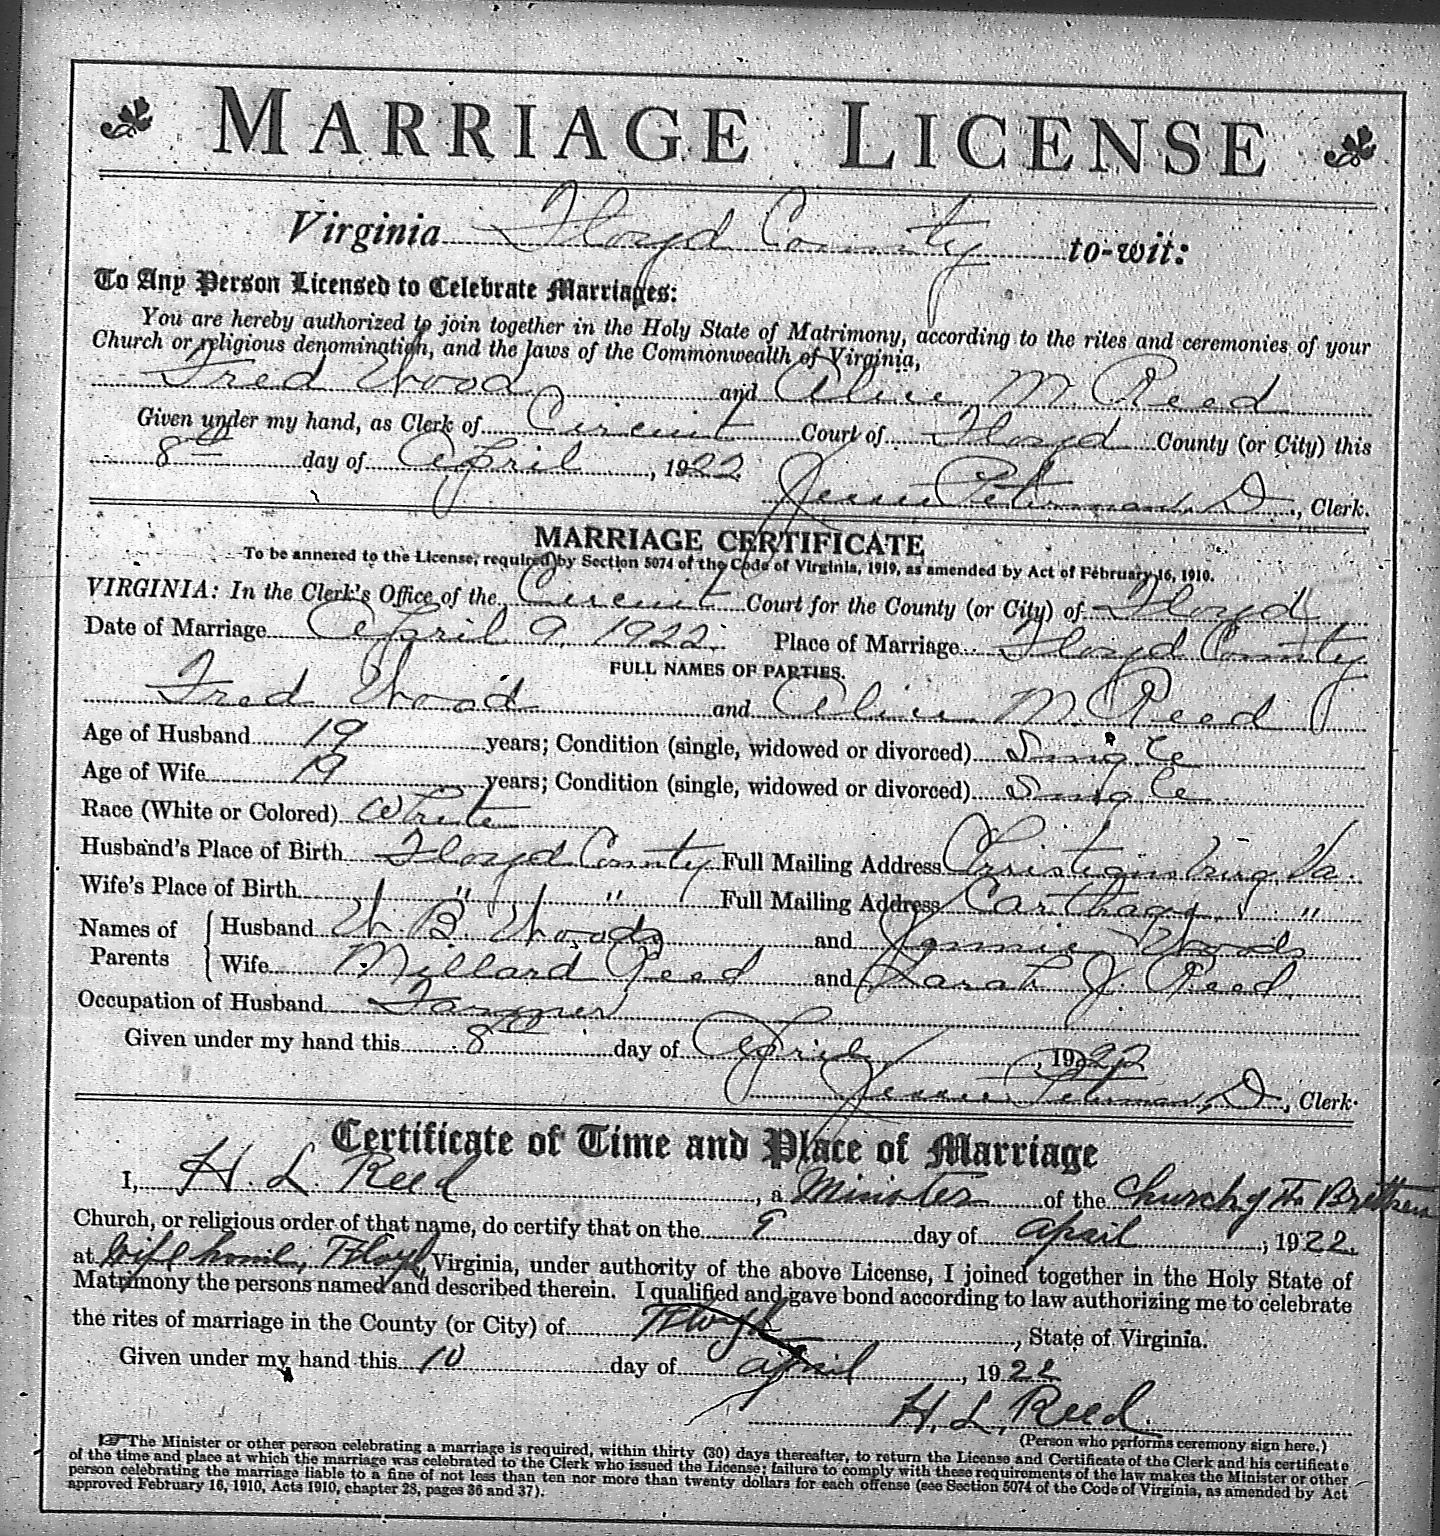 MARRIAGE LICENSE
Virginia Floyd County to-wit:
To Any Person Licensed to Celebrate Marriages:
You are hereby authorized to join together in the Holy State of Matrimony, according to the rites and ceremonies of your
Church or religious denomination, and the laws of the Commonwealth of Virginia,
Fred Wood and Alice M. Reed
Given under my hand, as Clerk of Circuit Court of Floyd County (or City) this
8th day of April, 1922
Jessie Peterman, D., Clerk.
MARRIAGE CERTIFICATE
To be annexed to the License, required by Section 5074 of the Code of Virginia, 1919, as amended by Act of February 16, 1910.
VIRGINIA: In the Clerk's Office of the Circuit Court for the County (or City) of Floyd
Date of Marriage April 9, 1922. Place of Marriage Floyd County
FULL NAMES OF PARTIES.
Fred Wood and Alice M. Reed
Age of Husband 19 years; Condition (single, widowed or divorced) Single
Age of Wife 19 years; Condition (single, widowed or divorced) Single
Race (White or Colored) White
Husband's Place of Birth Floyd County Full Mailing Address Christiansburg, Va.
Wife's Place of Birth " " Full Mailing Address Carthage, "
Names of Parents Husband W. B. Woods and Woods
Wife Millard Reed and Sarah J. Reed
Occupation of Husband Farmer
Given under my hand this 8th day of April, 1922
Jessie Peterman, D., Clerk.
Certificate of Time and Place of Marriage
I, H. L. Reed, a Minister of the Church of The Brethren
Church, or religious order of that name, do certify that on the 9 day of April, 1922.
at wife home, Floyd, Virginia, under authority of the above License, I joined together in the Holy State of
Matrimony the persons named and described therein. I qualified and gave bond according to law authorizing me to celebrate
the rites of marriage in the County (or City) of Floyd, State of Virginia.
Given under my hand this 10 day of April, 1922
H. L. Reed.
(Person who performs ceremony sign here.)
The Minister or other person celebrating a marriage is required, within thirty (30) days thereafter, to return the License and Certificate of the Clerk and his certificate
of the time and place at which the marriage was celebrated to the Clerk who issued the License; failure to comply with these requirements of the law makes the Minister or other
person celebrating the marriage liable to a fine of not less than ten nor more than twenty dollars for each offense (see Section 5074 of the Code of Virginia, as amended by Act
approved February 16, 1910, Acts 1910, chapter 28, pages 36 and 37).